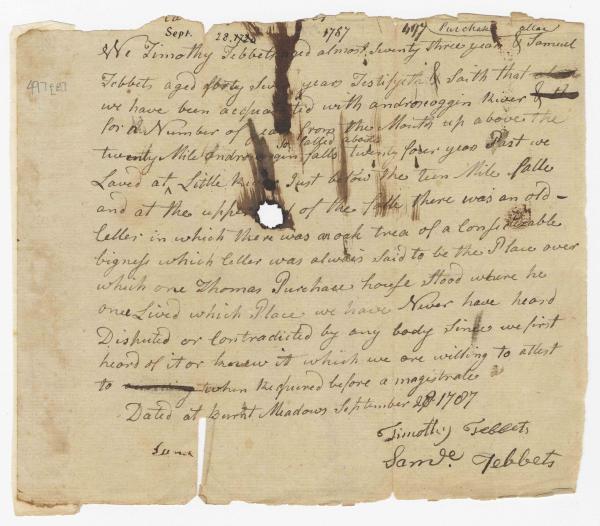 Sept. 28, 1787 1787 Purchase
We Timothy Tebbets aged almost Seventy three years & Samuel
Tebbets aged forty Seven years Testifieth & Saith that
we have been acquainted with androscoggin River &
for a Number of years from the Mouth up above the
so called about
twenty Mile Androscoggin falls twenty four years Past we
Laved at Little River Just below the ten Mile falls
and at the upper of the falls there was an old-
Celler in which there was an oak trea of a Considerable
bigness which Celler was always said to be the Place over
which one Thomas Purchase house Stood where he
once Lived which Place we have Never have heard
Disputed or Contradicted by any body Since we first
heard of it or knew it which we are willing to attest
to when Required before a magistrate
Dated at Burnt Meadows September 28 1787
Timothy Tebbets
Samle Tebbets